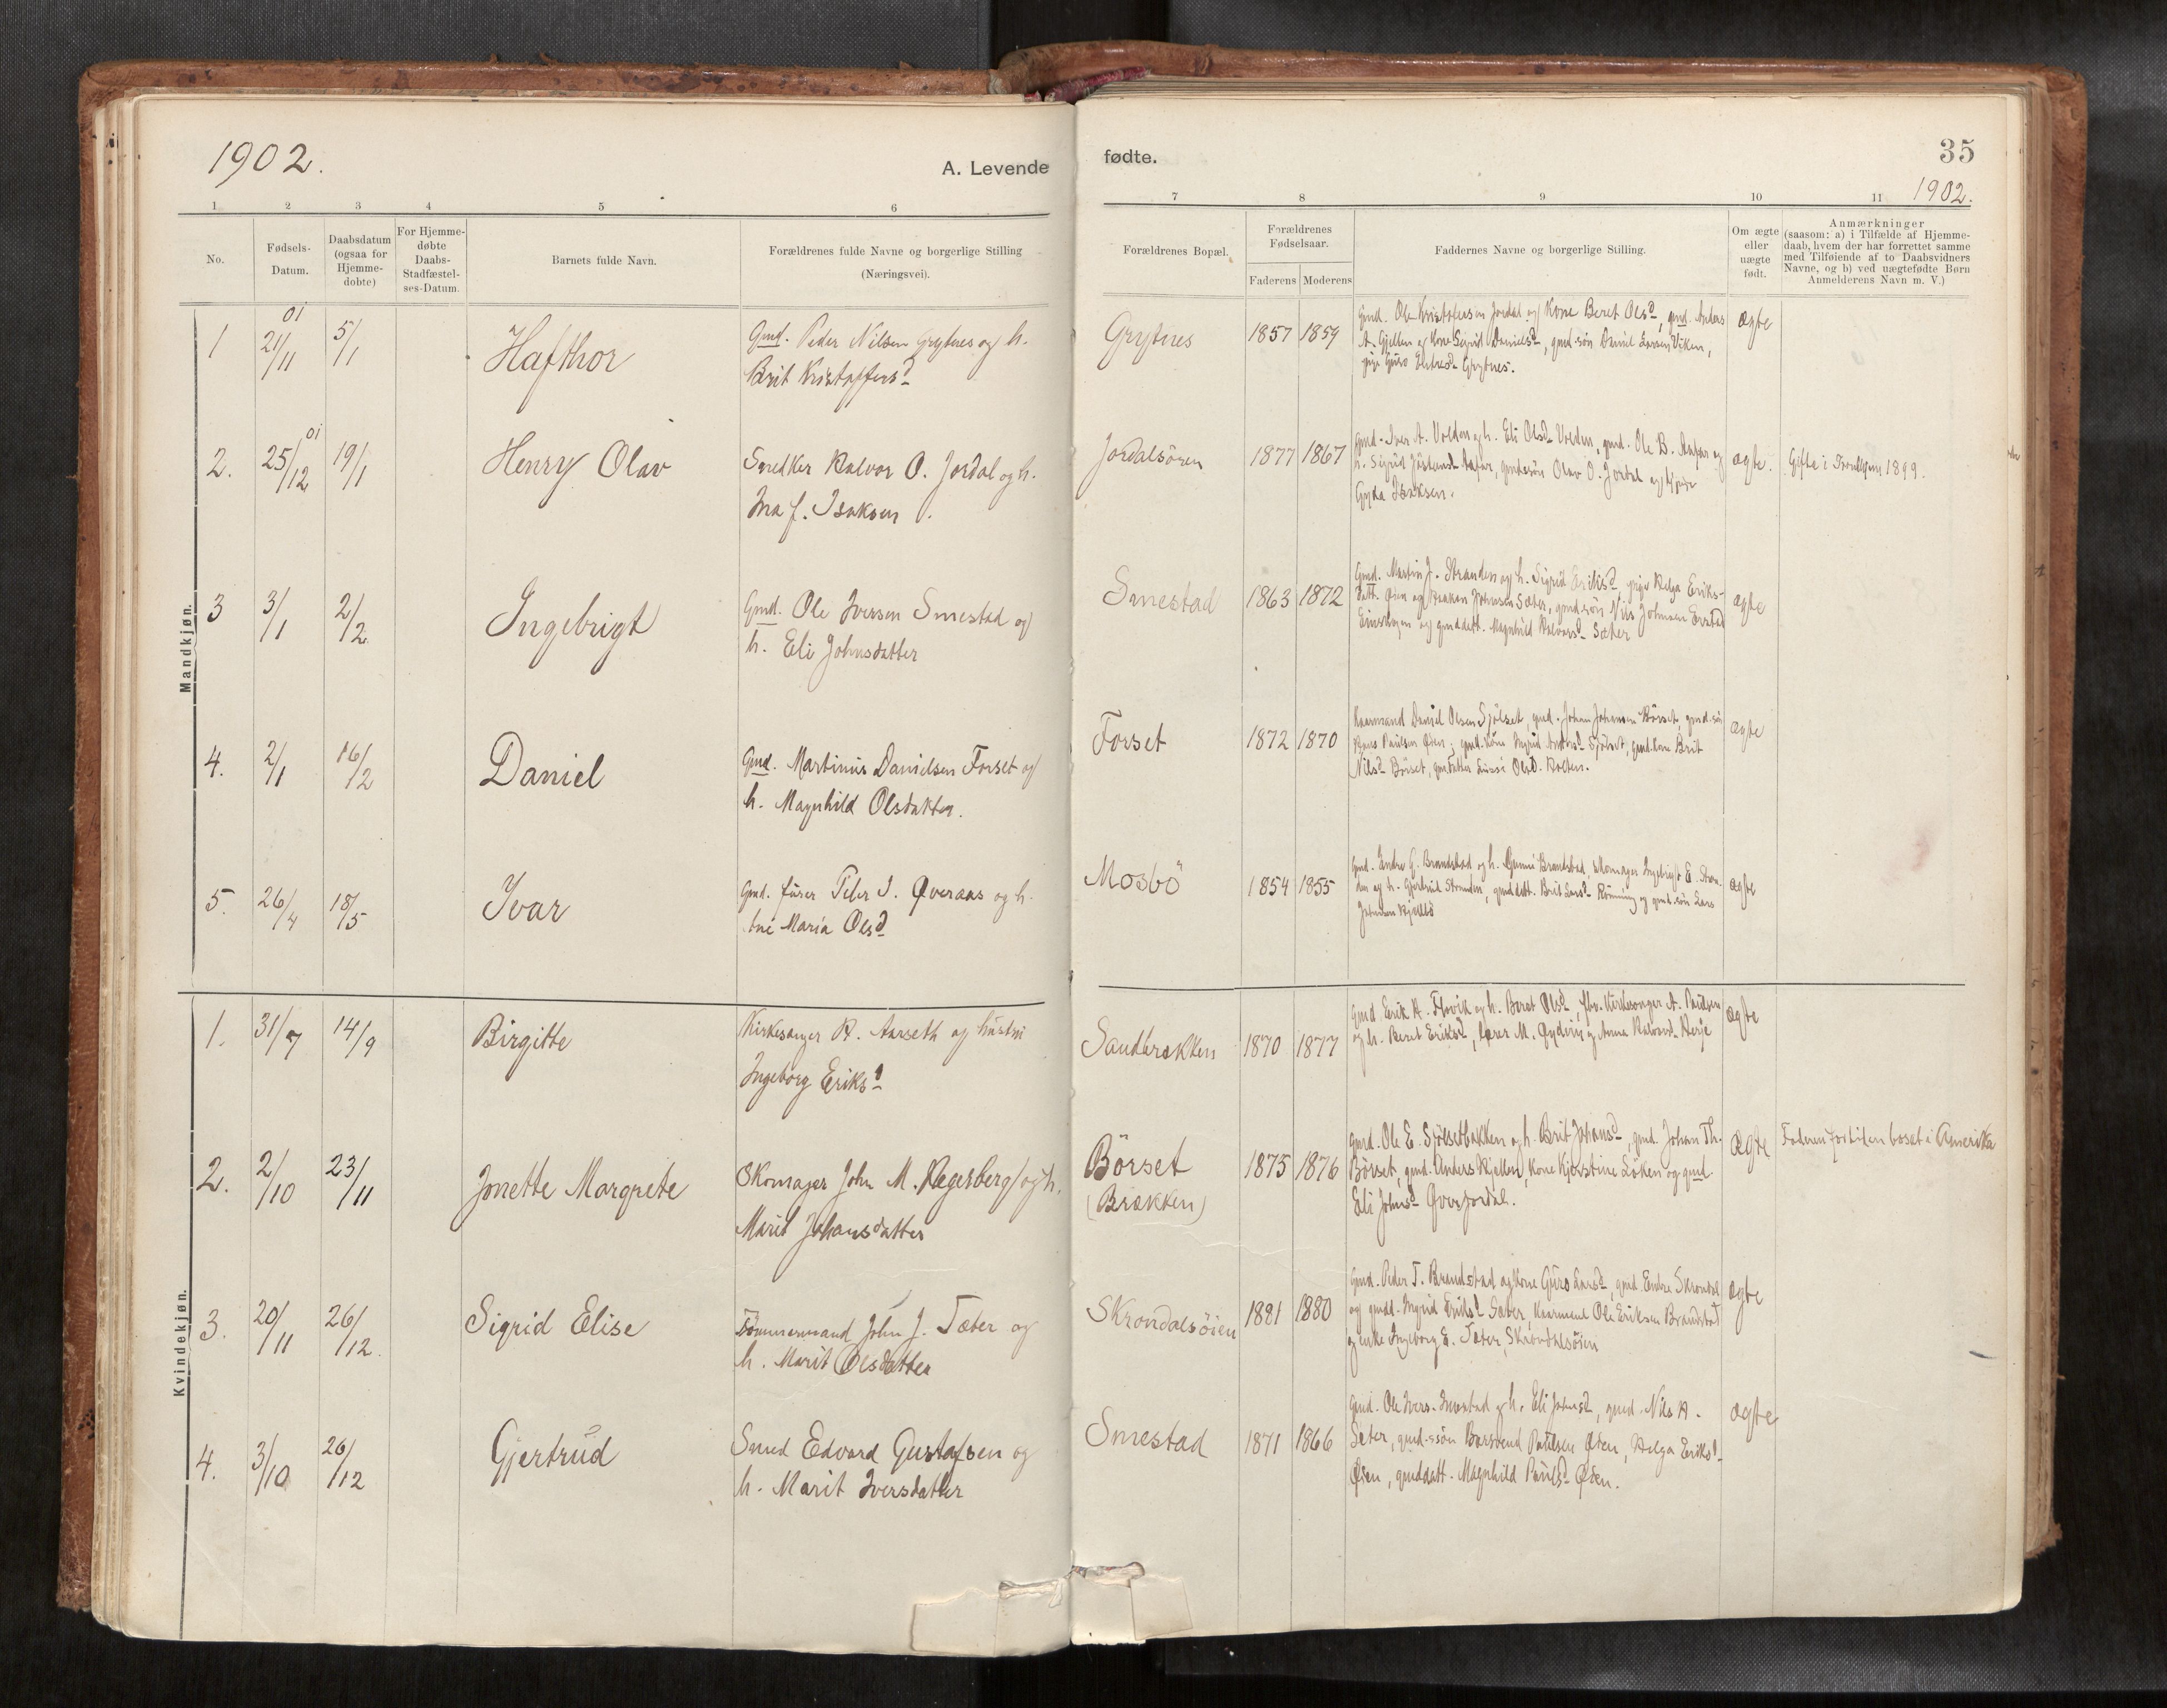 1902.
A. Levende
fødte.
35
1902.
1 2 3 4 5 6
7 8 9 10 11
No.
Fødsels-
Datum.
Daabsdatum
(ogsaa for
Hjemme-
døbte)
For Hjemme-
døbte
Daabs-
Stadfæstel-
ses-Datum.
Barnets fulde Navn.
Forældrenes fulde Navne og borgerlige Stilling
(Næringsvei).
Forældrenes Bopæl.
Forældrenes
Fødselsaar.
Faderens
Moderens
Faddernes Navne og borgerlige Stilling.
Om ægte
eller
uægte
født.
Anmærkninger
(saasom: a) i Tilfælde af Hjemme-
daab, hvem der har forrettet samme
med Tilføiende af to Daabsvidners
Navne, og b) ved uægtefødte Børn
Anmelderens Navn m. V.)
Mandkjøn.
1
21/11 01
5/1
Hafthor
Gmd. Peder Nilsen Grytnes og h.
Brit Kristoffersd
Grytnes
1857
1859
Gmd. Ole Kristofersen Jordal og Kone Beret Olsd, gmd. Anders
A. Gjellen og Kone Sigrid Danielsd, gmd.søn Daniel Larsen Viken,
pige Guro Grytnes.
ægte
2.
25/12 01
19/1
Henry Olav
Snedker Halvor O. Jordal og h.
Ina f. Isaksen.
Jordalsören
1877
1867
gmd. Iver A. Volden og h. Eli Olsd Volden, gmd. Ole B. Aafar og
h. Sigrid Aafar, gmdsøn Olav O. Jordal og
Gyda Isaksen.
ægte.
Gifte i Trondhjem 1899.
3
3/1
2/2
Ingebrigt
Gmd. Ole Iversen Smestad og
h. Eli Johnsdatter
Smestad
1863
1872
Gmd. Martin J. Stranden og h. Sigrid Eriksd, pige Helga Eriks-
datt. Øien og Haakon Johnsen Sæter, gmd.søn Nils Johnsen
og gmddatt. Magnhild Halvorsd Sæter
ægte
4.
2/1
16/2
Daniel
Gmd. Martinus Danielsen Forset og
h. Magnhild Olsdatter.
Forset
1872
1870
Kaarmand Daniel Olsen Sjölset, gmd. Johan Johansen Börset, gmd.søn
Paulsen Øien, gmd.kone Ingrid Andersd Sjölset, gmd.kone Brit
Nilsd Börset, gmdatter Olsd. Holten.
ægte
5.
26/4
18/5
Ivar
Gmd. Peter I. Øveraas og h.
Ane Maria Olsd
Mosbö
1854
1855
Gmd. Endre G. Brandstad og h. Gunni Brandstad, skomager Ingebrigt E. Stran-
den og h. Gjertrud Stranden, gmddatt. Brit Larsd Rönning og gmd.søn Lars
Johnsen
ægte
Kvindekjøn.
1.
31/7
14/9
Birgitte
Kirkesanger H. Aarseth og hustru
Ingeborg Eriksd
Sandbrækken
1870
1877
Gmd. Erik H. Flovik og h. Beret Olsd, fhv. Kirkesanger A. Paulsen
og h. Beret Eriksd, lærer M. Øydvin og Anna Halvorsd Herje
ægte
2.
2/10
23/11
Jonette Margrete
Skomager John M. Hegerberg og h.
Marit Johansdatter
Börset
(Brækken)
1875
1876
gmd. Ole E. Sjölsetbakken og h. Brit Johansd, gmd. Johan Th.
Börset, gmd. Anders Kjellen, kone Kjerstine Löken og gmd
Eli Johnsd Øverjordal.
Ægte
Faderen for tiden boset i Amerika
3.
20/11
26/12.
Sigrid Elise
Tömmermand John J. Sæter og
h. Marit Olsdatter
Skrondalsöien
1881
1880
Gmd. Peder T. Brandstad og kone Guro Larsd, gmd. Endre Skrondal
og gmdd. Ingrid Eriksd Sæter, kaarmand Ole Eriksen Brandstad
og enke Ingeborg E. Sæter, Skrondalsöien
ægte
4.
3/10
26/12
Gjertrud
Smed Edvard Gustafsen og
h. Marit Iversdatter
Smestad
1871
1866
Gmd. Ole Ivers. Smestad og h. Eli Johnsd, gmd. Nils H.
Sæter, gmd.ssön Baroend Paulsen Øien, Helga Eriksd
Øien, gmddatt. Magnhild Paulsd Øien.
ægte